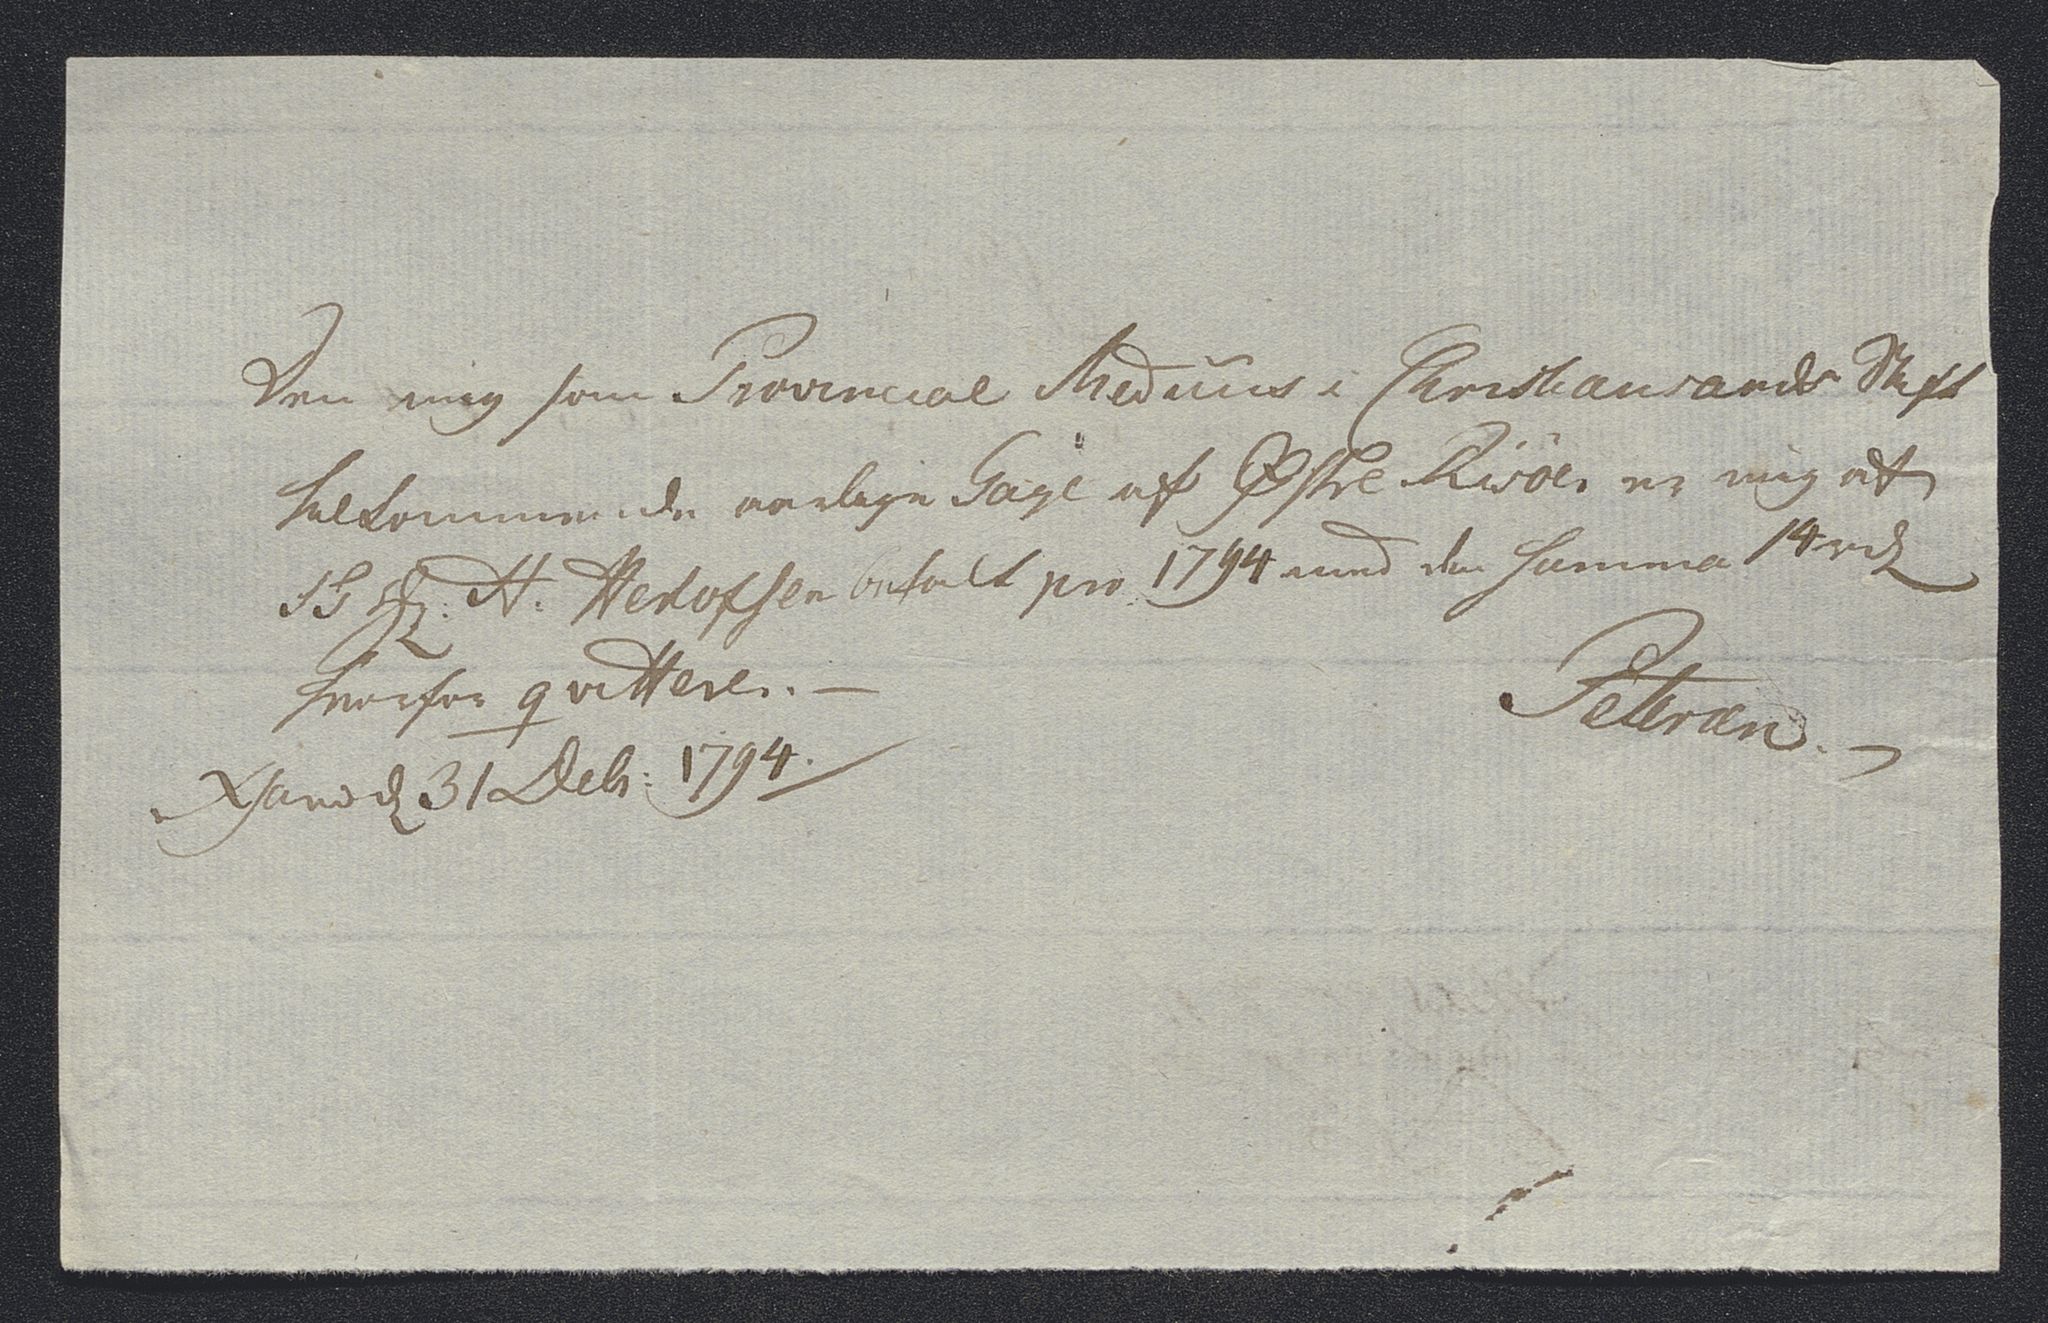 Den mig som Provincial Medicus i Christiansands Stift
tilkommende aarlige Gage af Østre Riisöer er mig af
H. Herlofsen betalt pro 1794 med den Summa 14 rd
hvorfor qvitterer. —
Xsand d 31 Debr: 1794.
Petersen